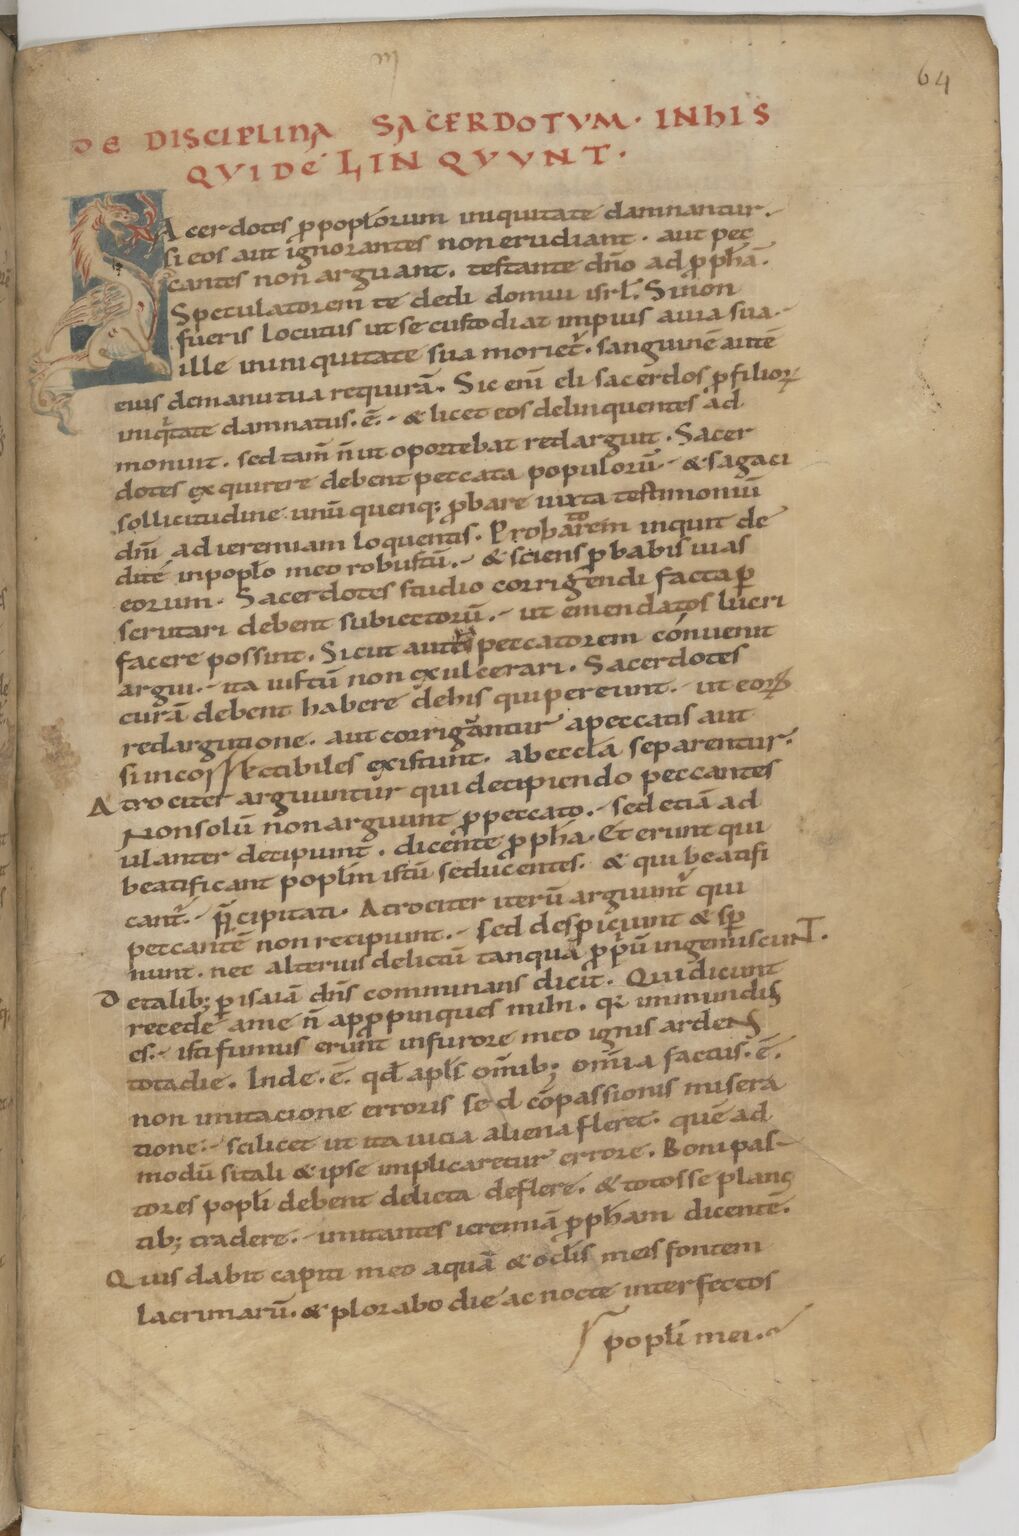 64
DE DISCIPLINA SACERDOTUM · IN HIS
QUI DELINQUUNT ·
Acerdotes p poplorum iniquitate damnantur ·
si eos aut ignorantes non erudiant · aut pec
cantes non arguant · testante dn̄o ad pphā ·
Speculatorem te dedi domui isrl̄ · Si non
fueris locutus ut se custodiat impius a uia sua ·
ille in iniquitate sua moriet̄ · sanguinē autē
eius de manu tua requirā · Sic enī eli sacerdos p filioꝝ
iniqͥtate damnatus · ē · & licet eos delinquentes ad
monuit · sed tam̄ n̄ ut oportebat redarguit · Sacer
dotes exquirere debent peccata populorū · & sagaci
sollicitudine unū quenq; pbare iuxta testimoniū
dn̄i ad ieremiam loquentis · Probatorem inquit de
dite in poplo meo robustū · & sciens pbabis uias
eorum · Sacerdotes studio corrigendi facta p̱
scrutari debent subiectorū · ut emendatos lucri
facere possint · Sicut autē peccatorem conuenit
argui · ita iustū non exulcerari · Sacerdotes
curā debent habere de his qui pereunt · ut eoꝝ
redargutione · aut corrigantur a peccatis aut
si incorrectibiles existunt · ab eccl̄a separentur ·
Atrociter arguuntur qui decipiendo peccantes
Non solū non arguunt p peccato · sed etiā ad
ulanter decipiunt · dicente ppha · Et erunt qui
beatificant poplm̄ istū seducentes · & qui beatifi
cant̄ · p̄cipitati · Atrociter iterū arguunt̄ qui
peccantē non recipiunt · sed despiciunt & sp̱
nunt · nec alterius delictū tanquā ppriū ingemiscunT ·
De talib; p̱ isaiā dn̄s comminans dicit · Qui dicunt
recede a me n̄ apppinques mihi · qr̄ inmundus
es · isti fumus erunt in furore meo ignis ardeNs
tota die · Inde · ē · qđ apl̄s om̄ib; om̄ia factus · ē ·
non imitacione erroris sed cōpassionis misera
tione · scilicet ut ita uicia aliena fleret · quē ad
modū si tali & ipse implicaretur errore · Boni pas-
tores popli debent delicta deflere · & totos se planc
tib; tradere · imitantes ieremiā ppham dicentē ·
Quis dabit capiti meo aquā & oclis meis fontem
lacrimarū · & plorabo die ac nocte interfectos
popli mei ·